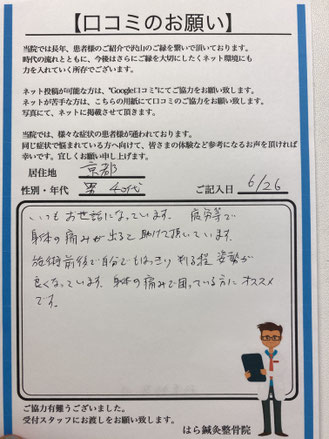 【口コミのお願い】
当院では長年、患者様のご紹介で沢山のご縁を繋いで頂いております。
時代の流れとともに、今後はさらにご縁を大切にしたくネット環境にも
力を入れていく所存でございます。
ネット投稿が可能な方は、"Google口コミ"にてご協力をお願い致します。
ネットが苦手な方は、こちらの用紙にて口コミのご協力をお願い致します。
写真にて、ネットに掲載させて頂きます。
当院では、様々な症状の患者様が通われております。
同じ症状で悩まれている方へ向けて、皆さまの体験など参考になるお声を頂ければ
幸いです。宜しくお願い申し上げます。
居住地 京都
性別・年代 男 40代 ご記入日 6/26
いつもお世話になっています。 疲労等で
身体の痛みが出ると助けて頂いています。
施術前後で自分でもはっきり判る程 姿勢が
良くなっています。身体の痛みで困っている方にオススメ
です。
ご協力有難うございました。
受付スタッフにお渡しをお願い致します。
はら鍼灸整骨院